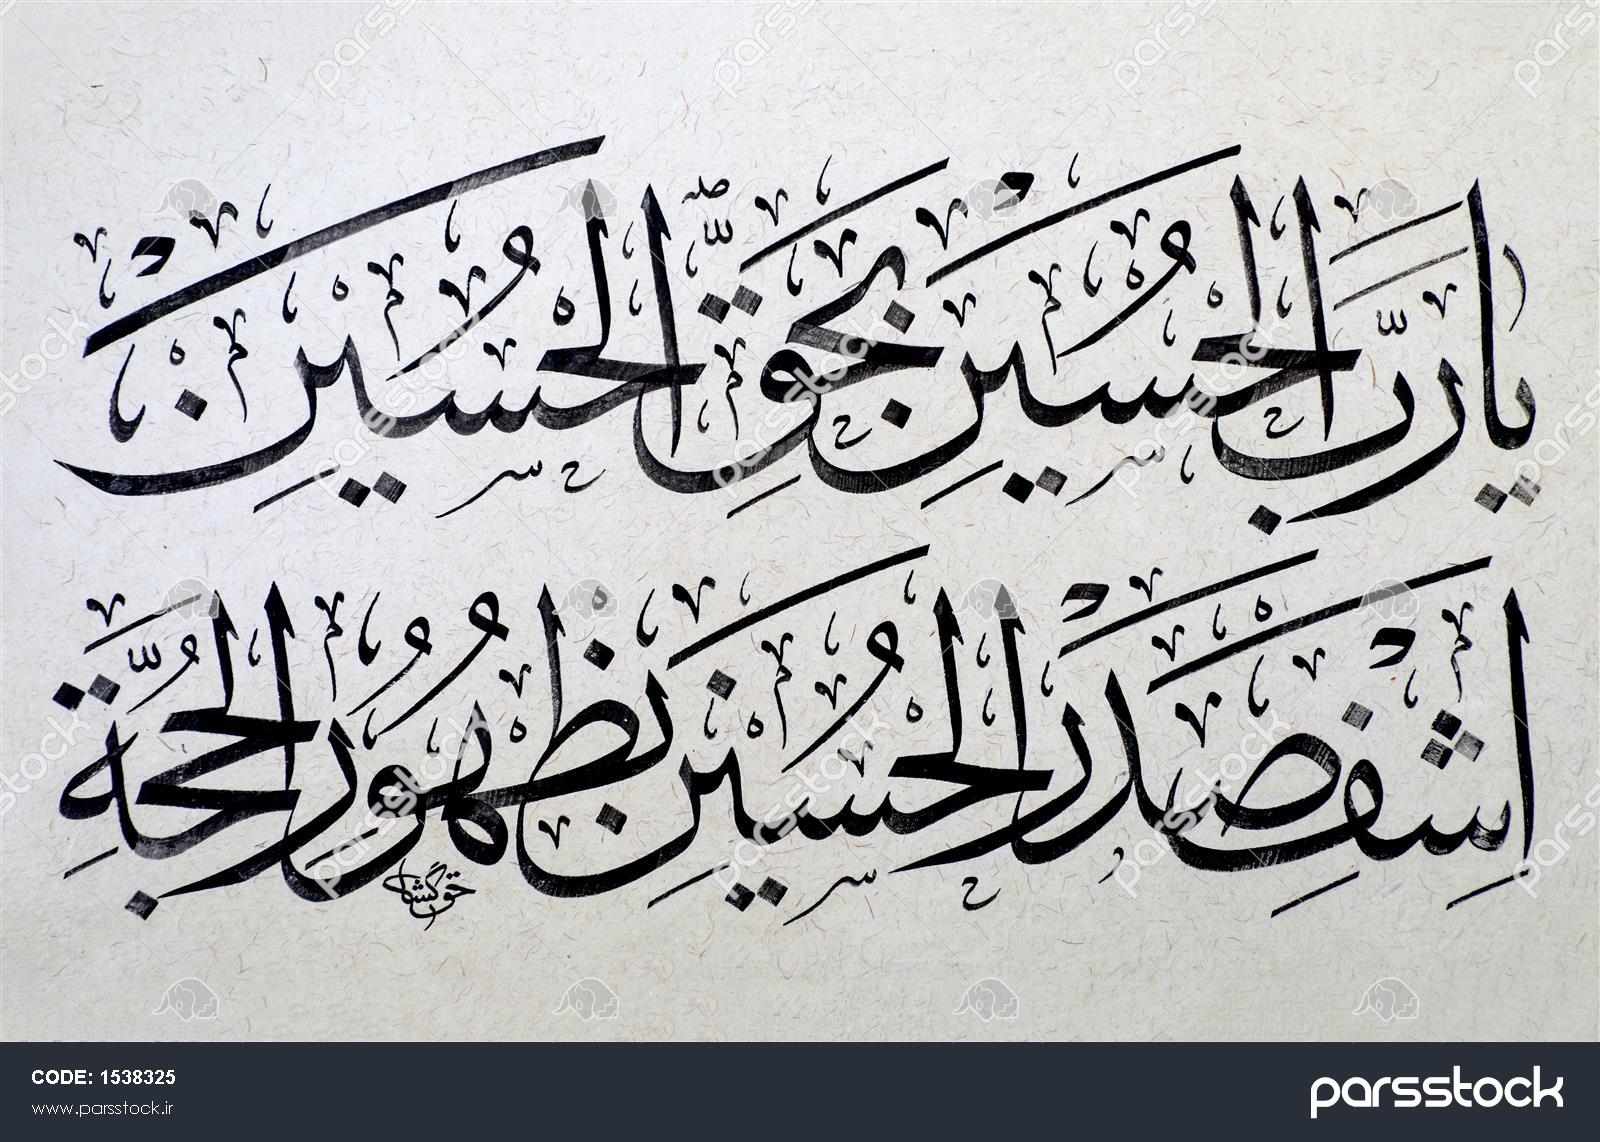 يا رَبَّ الْحُسَيْنِ بِحَقِّ الْحُسَيْنِ
اِشْفِ صَدْرَ الْحُسَيْنِ بِظُهُورِ الْحُجَّةِ
CODE: 1538325
www.parsstock.ir
parsstock